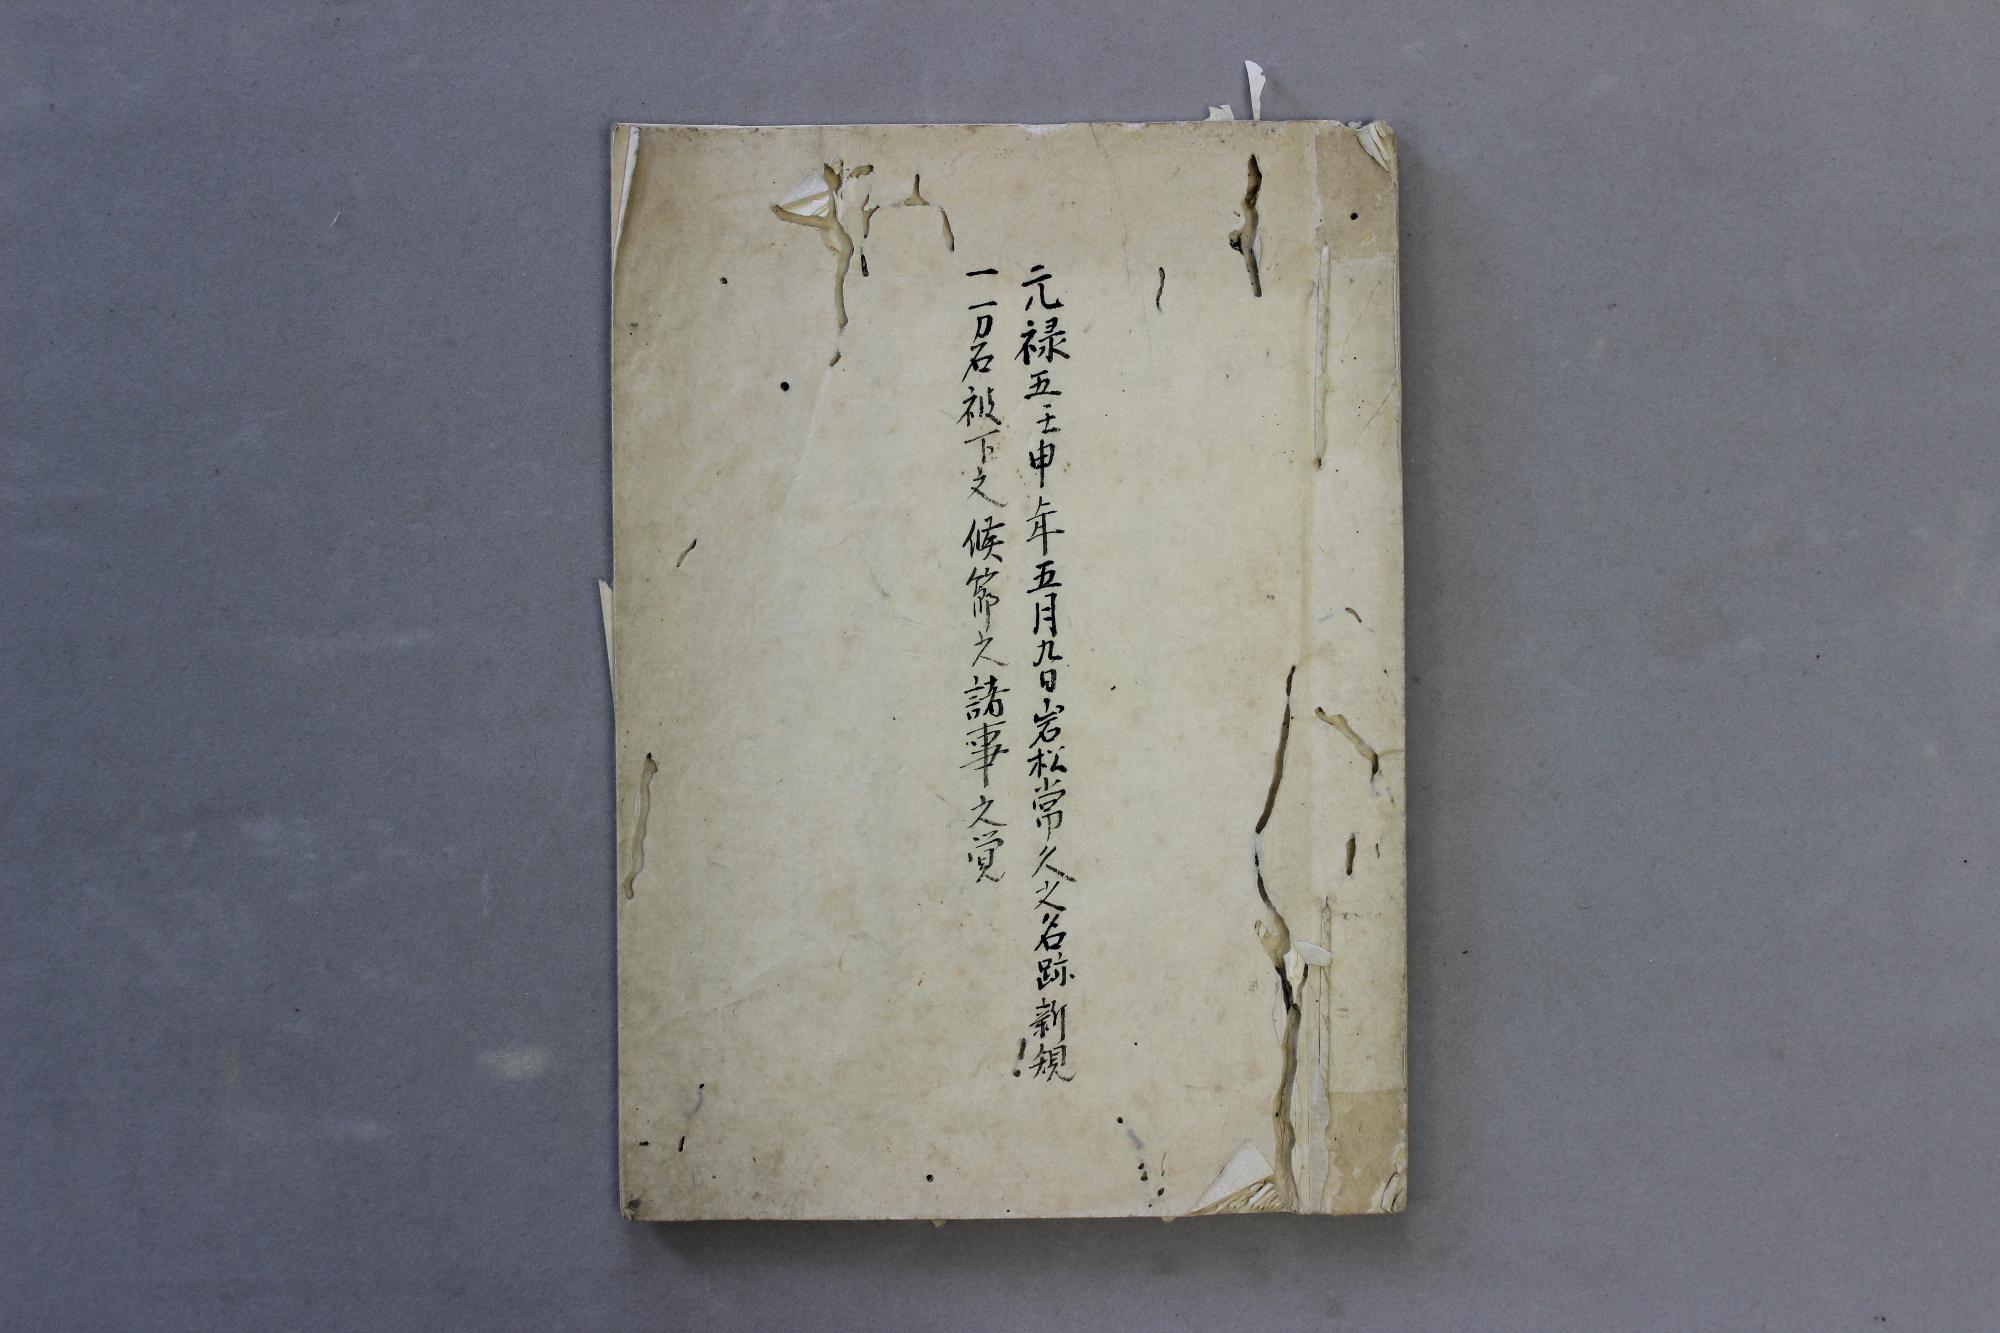 元禄五壬申年五月九日岩松常久之名跡新規
一一刀石被下之候節之諸事之覚